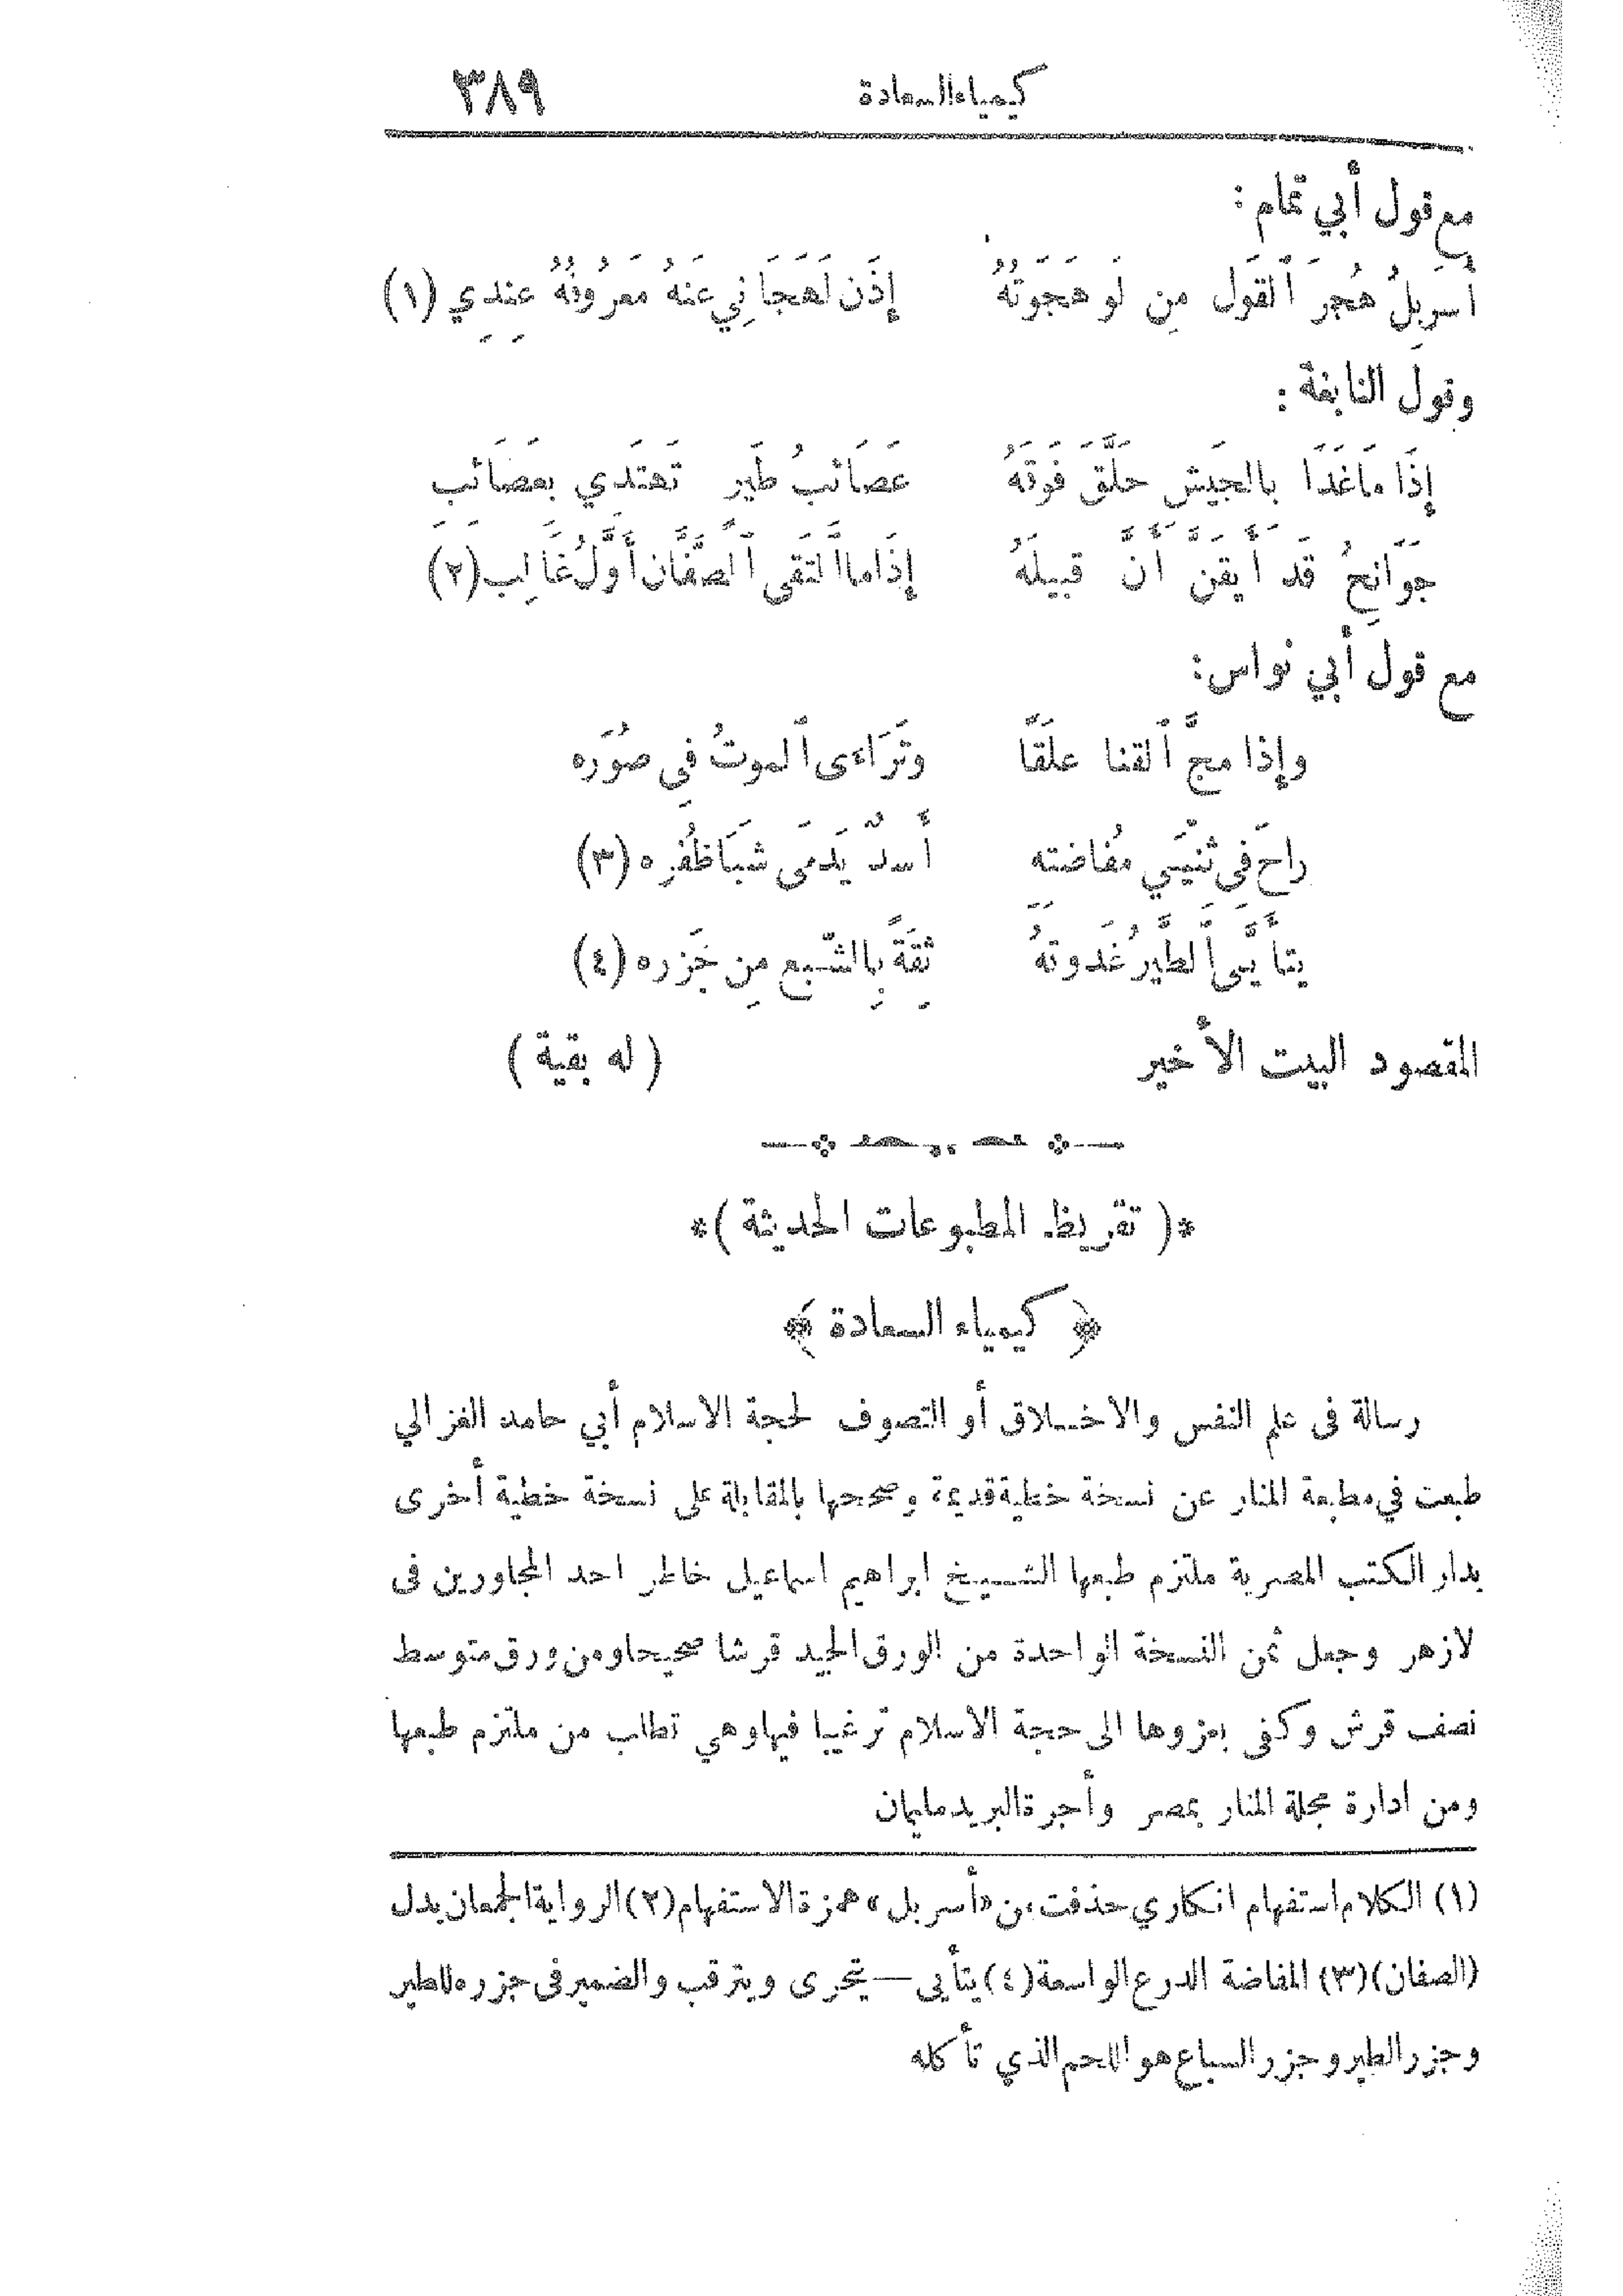 كيمياء السعادة ٣٨٩
مع قول أبي تمام :
أُسَرْبِلُ هُجرَ ٱلقَولِ مِن لَو هَجَوتُهُ إِذَن لَهَجَانِي عَنهُ مَعرُوفُهُ عِندِي (١)
وقول النابغة :
إِذَا مَا غَدَا بالجَيشِ حَلَّقَ فَوقَهُ عَصَائبُ طَيرٍ تَهتَدِي بعَصَائب
جَوَانِحُ قَد أَيقَنَّ أَنَّ قَبِيلَهُ إِذَا ما ٱلتَقَى ٱلصَّفَّانِ أَوَّلُ غَالِب (٢)
مع قول أبي نواس:
وإِذا مجَّ ٱلقنا علَقًا وتَرَاءى ٱلموتُ فِي صُوَرِه
راحَ فِي ثنيَي مُفاضته أَسدٌ يَدمَى شَبَا ظُفُرِه (٣)
يتأَيَّى ٱلطَّيرُ غُدوتَهُ ثِقَةً بِالشّبعِ مِن جَزَره (٤)
المقصود البيت الأخير ( له بقية )
*( تقريظ المطبوعات الحديثة )*
﴿ كيمياء السعادة ﴾
رسالة فى علم النفس والاخــلاق أو التصوف لحجة الاسلام أبي حامد الغزالي
طبعت في مطبعة المنار عن نسخة خطية قديمة وصححها بالمقابلة على نسخة خطية أخرى
بدار الكتب المصرية ملتزم طبعها الشــيخ ابراهيم اسماعيل خاطر احد المجاورين فى
لازهر وجعل ثمن النسخة الواحدة من الورق الجيد قرشا صحيحا ومن ورق متوسط
نصف قرش وكفى بعزوها الى حجة الاسلام ترغيبا فيها وهي تطلب من ملتزم طبعها
ومن ادارة مجلة المنار بمصر وأجرة البريد مليمان
(١) الكلام استفهام انكاري حذفت من «أسربل» همزة الاستفهام (٢) الرواية الجمعان بدل
(الصفان) (٣) المفاضة الدرع الواسعة (٤) يتأيى — يتحرى ويترقب والضمير فى جزره للطير
وجزر الطير وجزر السباع هو اللحم الذي تأكله